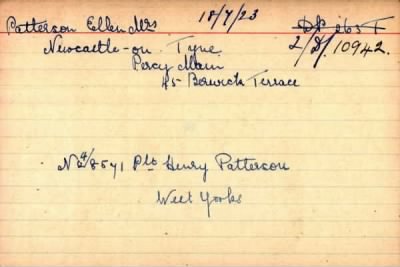 Patterson Ellen Mrs 18/7/23 DP 265 T
Newcastle-on-Tyne 2/D/. 10942.
Percy Main
45 Berwick Terrace
No 4/8571 Pte Henry Patterson
West Yorks